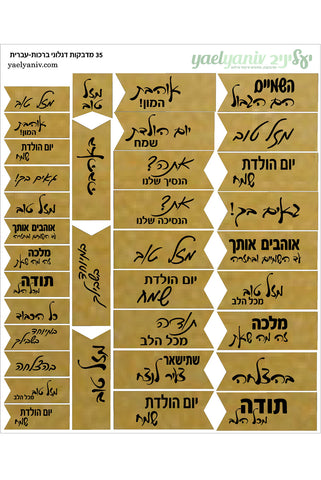 יעליניב yaelyaniv
35 מדבקות דגלוני ברכות-עברית
yaelyaniv.com
השמיים
הם הגבול
מזל טוב
יום הולדת
שמח
גאים בך!
אוהבים אותך
עד השמיים ובחזרה
מזל טוב
מכל הלב
מלכה
זה מה שאת
בהצלחה
תודה
מכל הלב
אוהבת
המון!
יום הולדת
שמח
אתה
הנסיך שלנו
את
הנסיכה שלנו
מזל טוב
יום הולדת
שמח
תודה
מכל הלב
שתישאר
צעיר לנצח
יום הולדת
שמח
מזל
טוב
במיוחד
בשבילך
מזל טוב
מזל טוב
אוהבת
המון!
יום הולדת
שמח
גאים בך!
מזל טוב
אוהבים אותך
עד השמיים ובחזרה
מלכה
זה מה שאת
תודה
מכל הלב
כל הכבוד
במיוחד
בשבילך
בהצלחה
מזל טוב
מכל הלב
יום הולדת
שמח